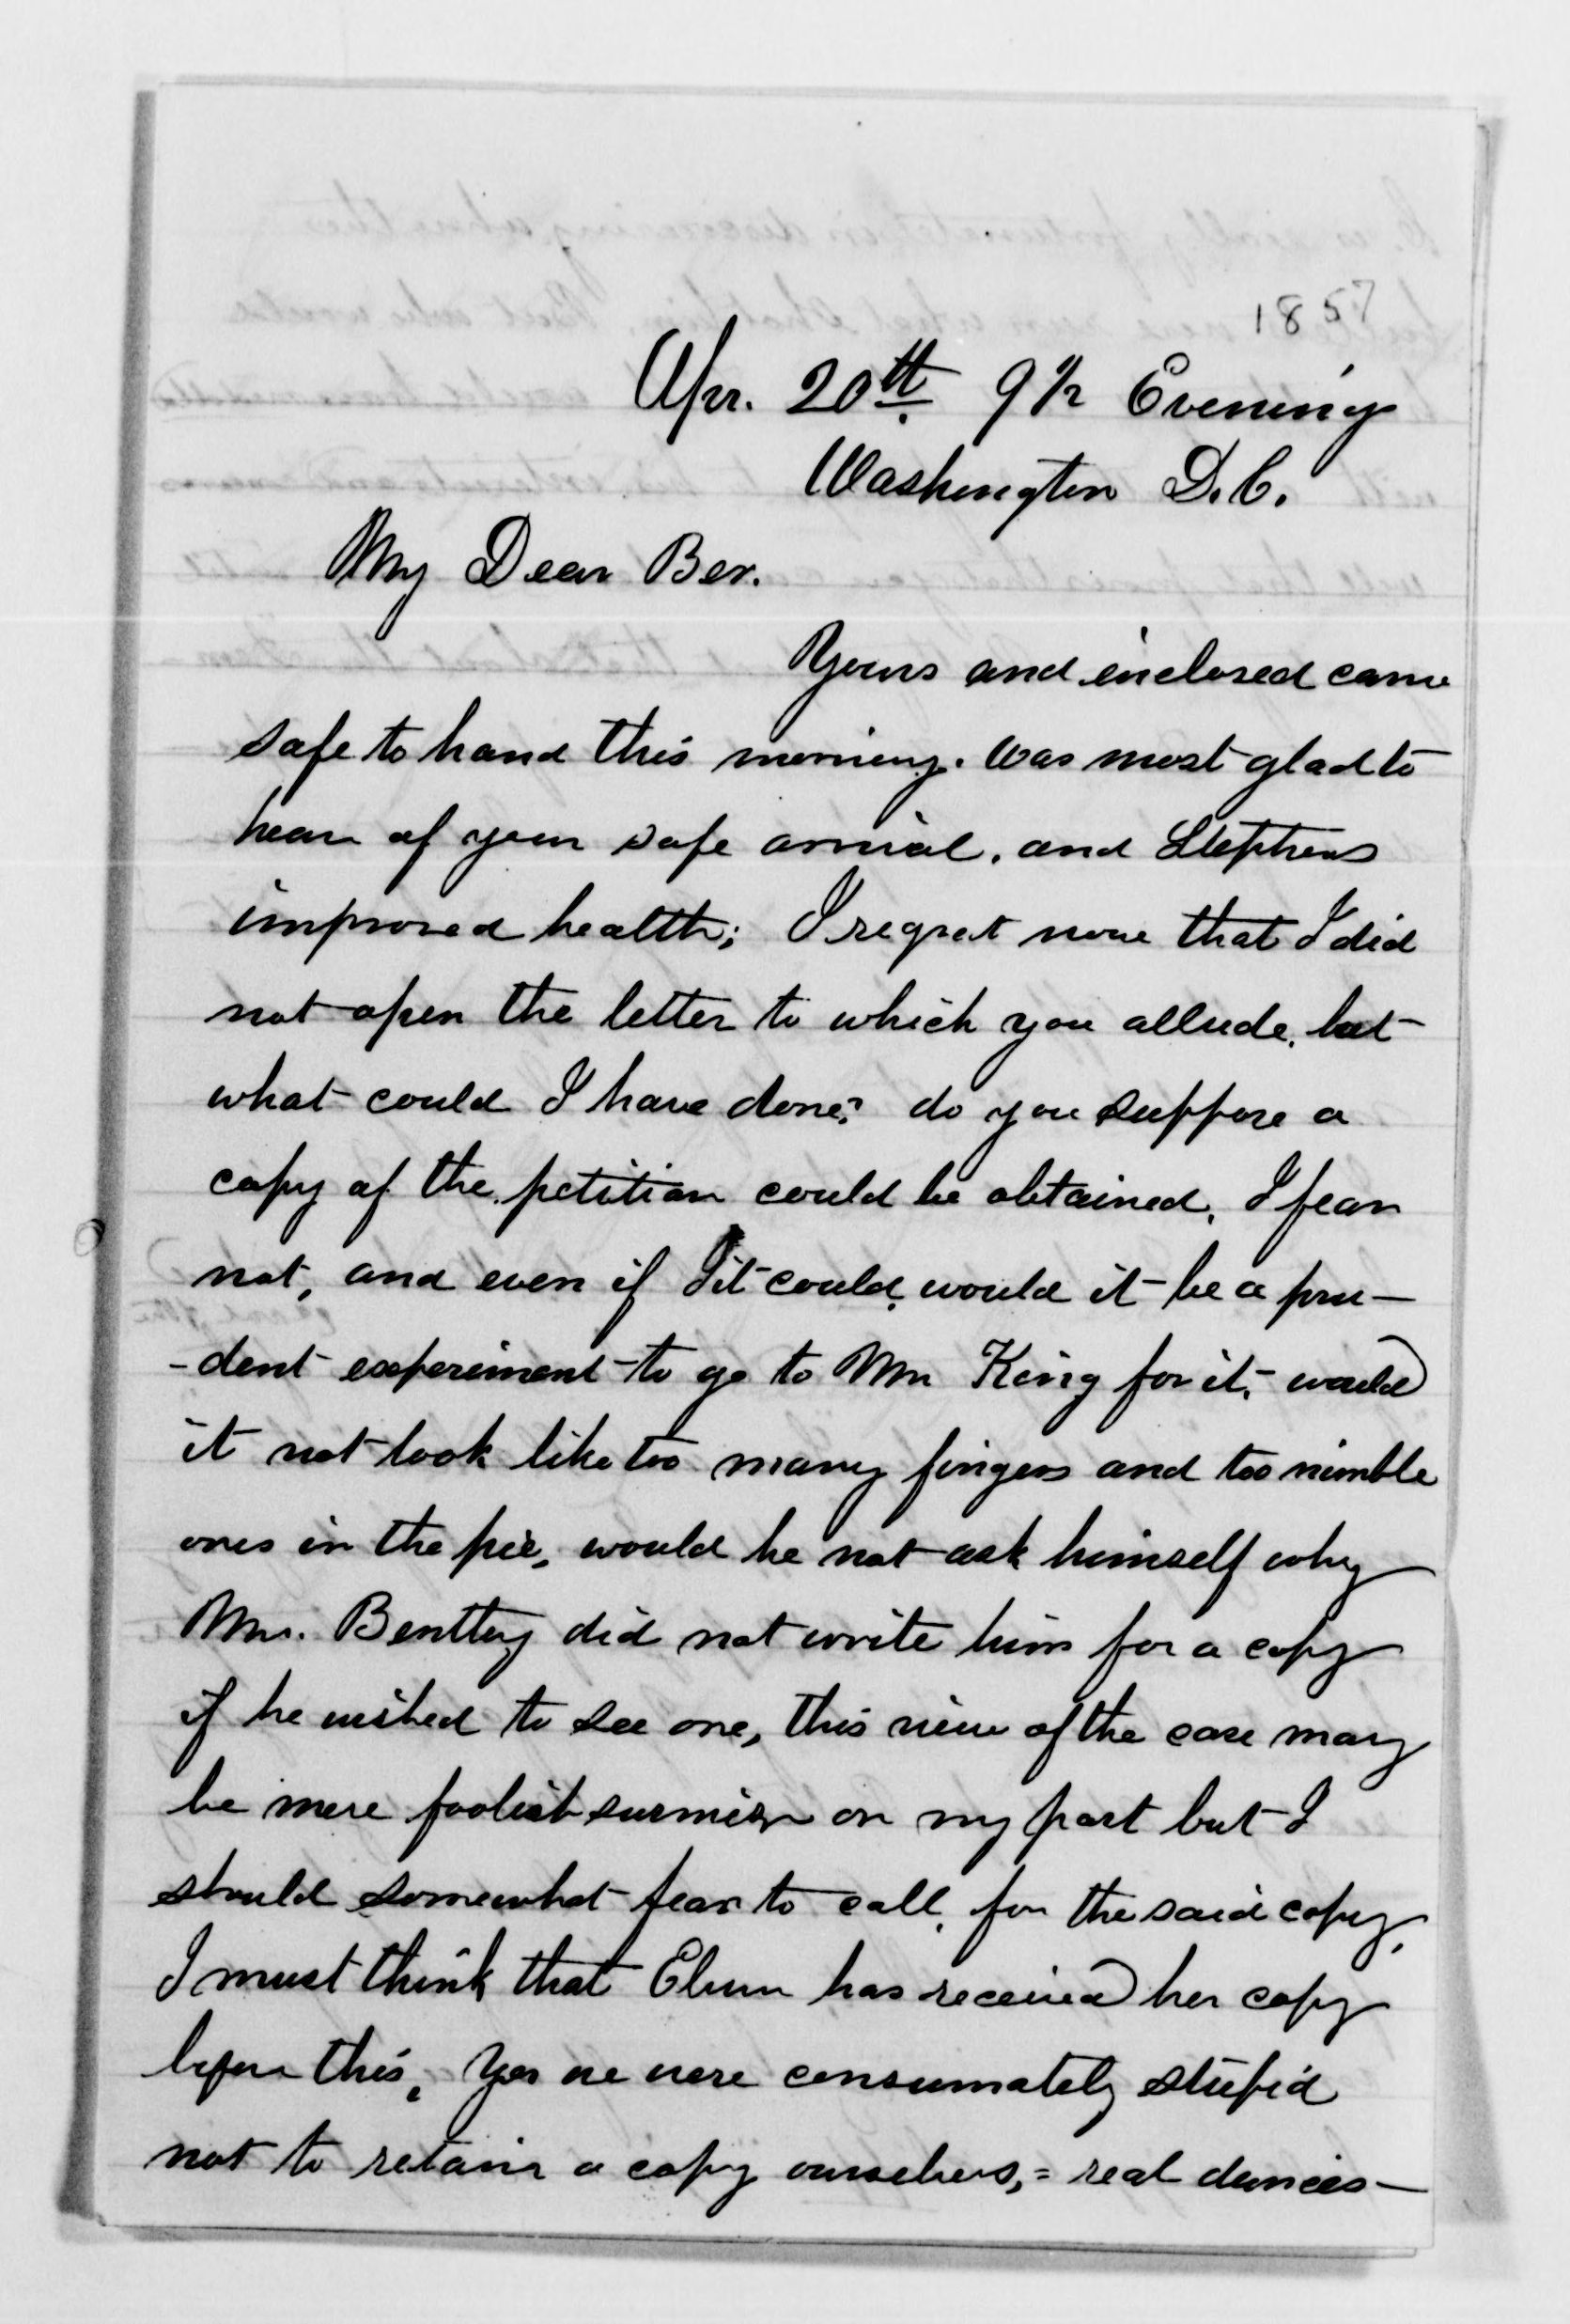 1857
Apr. 20th. 9 1/2 Evening
Washington D.C.
My Dear Ber.
Yours and enclosed came
safe to hand this morning. Was most glad to
hear of your safe arrival, and Stephens
improved health; I regret now that I did
not open the letter to which you allude, but
what could I have done? do you suppose a
copy of the petition could be obtained, I fear
not, and even if it could, would it be a pru-
-dent experiment to go to Mr King for it, would
it not look like too many fingers and too nimble
ones in the pie, would he not ask himself why
Mr. Benttey did not write him for a copy
if he wished to see one, this view of the case may
be mere foolish surmise on my part but I
should somewhat fear to call for the said copy,
I must think that Elvira has received her copy
before this, Yes we were consumately stupid
not to retain a copy ourselves, = real dunces -